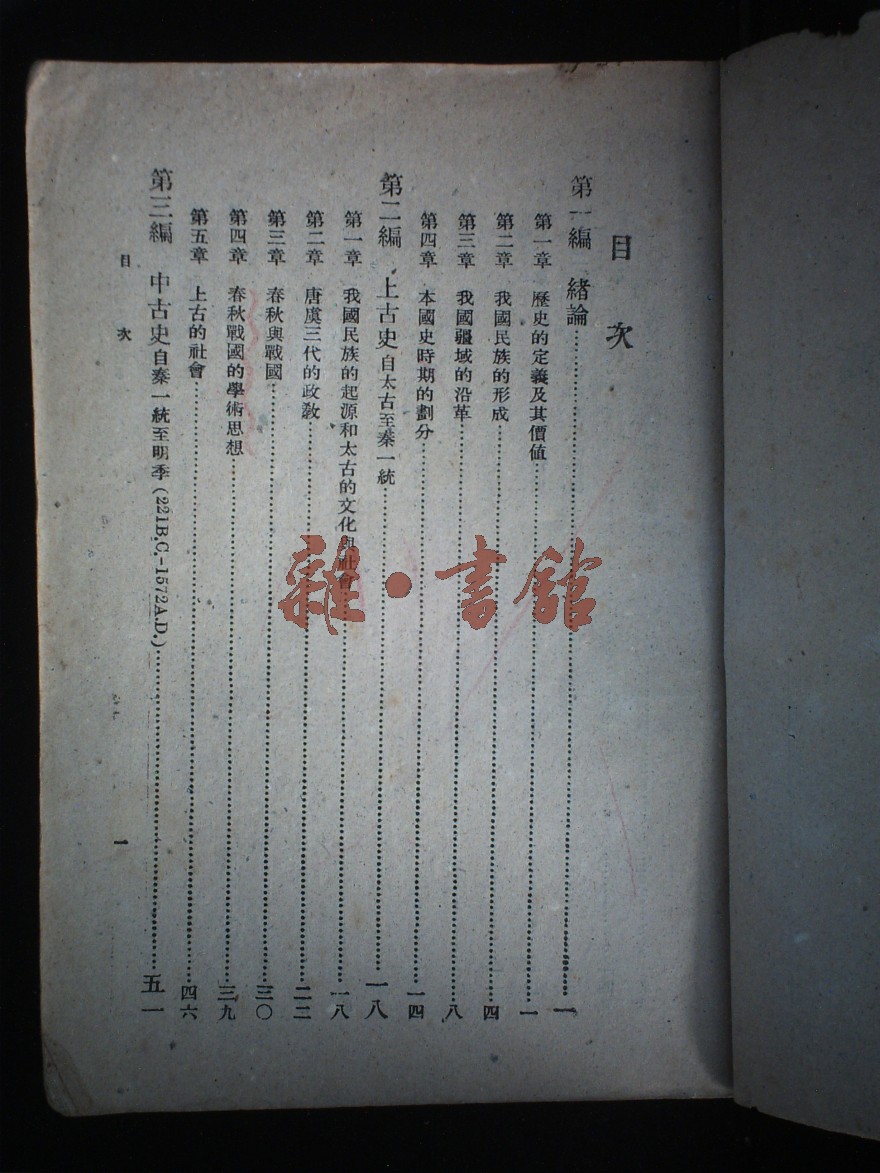 目次
第一編 緒論……一
第一章 歷史的定義及其價値……一
第二章 我國民族的形成……四
第三章 我國疆域的沿革……八
第四章 本國史時期的劃分……一四
第二編 上古史 自太古至秦一統……一八
第一章 我國民族的起源和太古的文化與社會……一八
第二章 唐虞三代的政敎……二二
第三章 春秋與戰國……三〇
第四章 春秋戰國的學術思想……三九
第五章 上古的社會……四六
第三編 中古史 自秦一統至明季(221B.C.-1572A.D.)……五一
目次 一
雜·書館